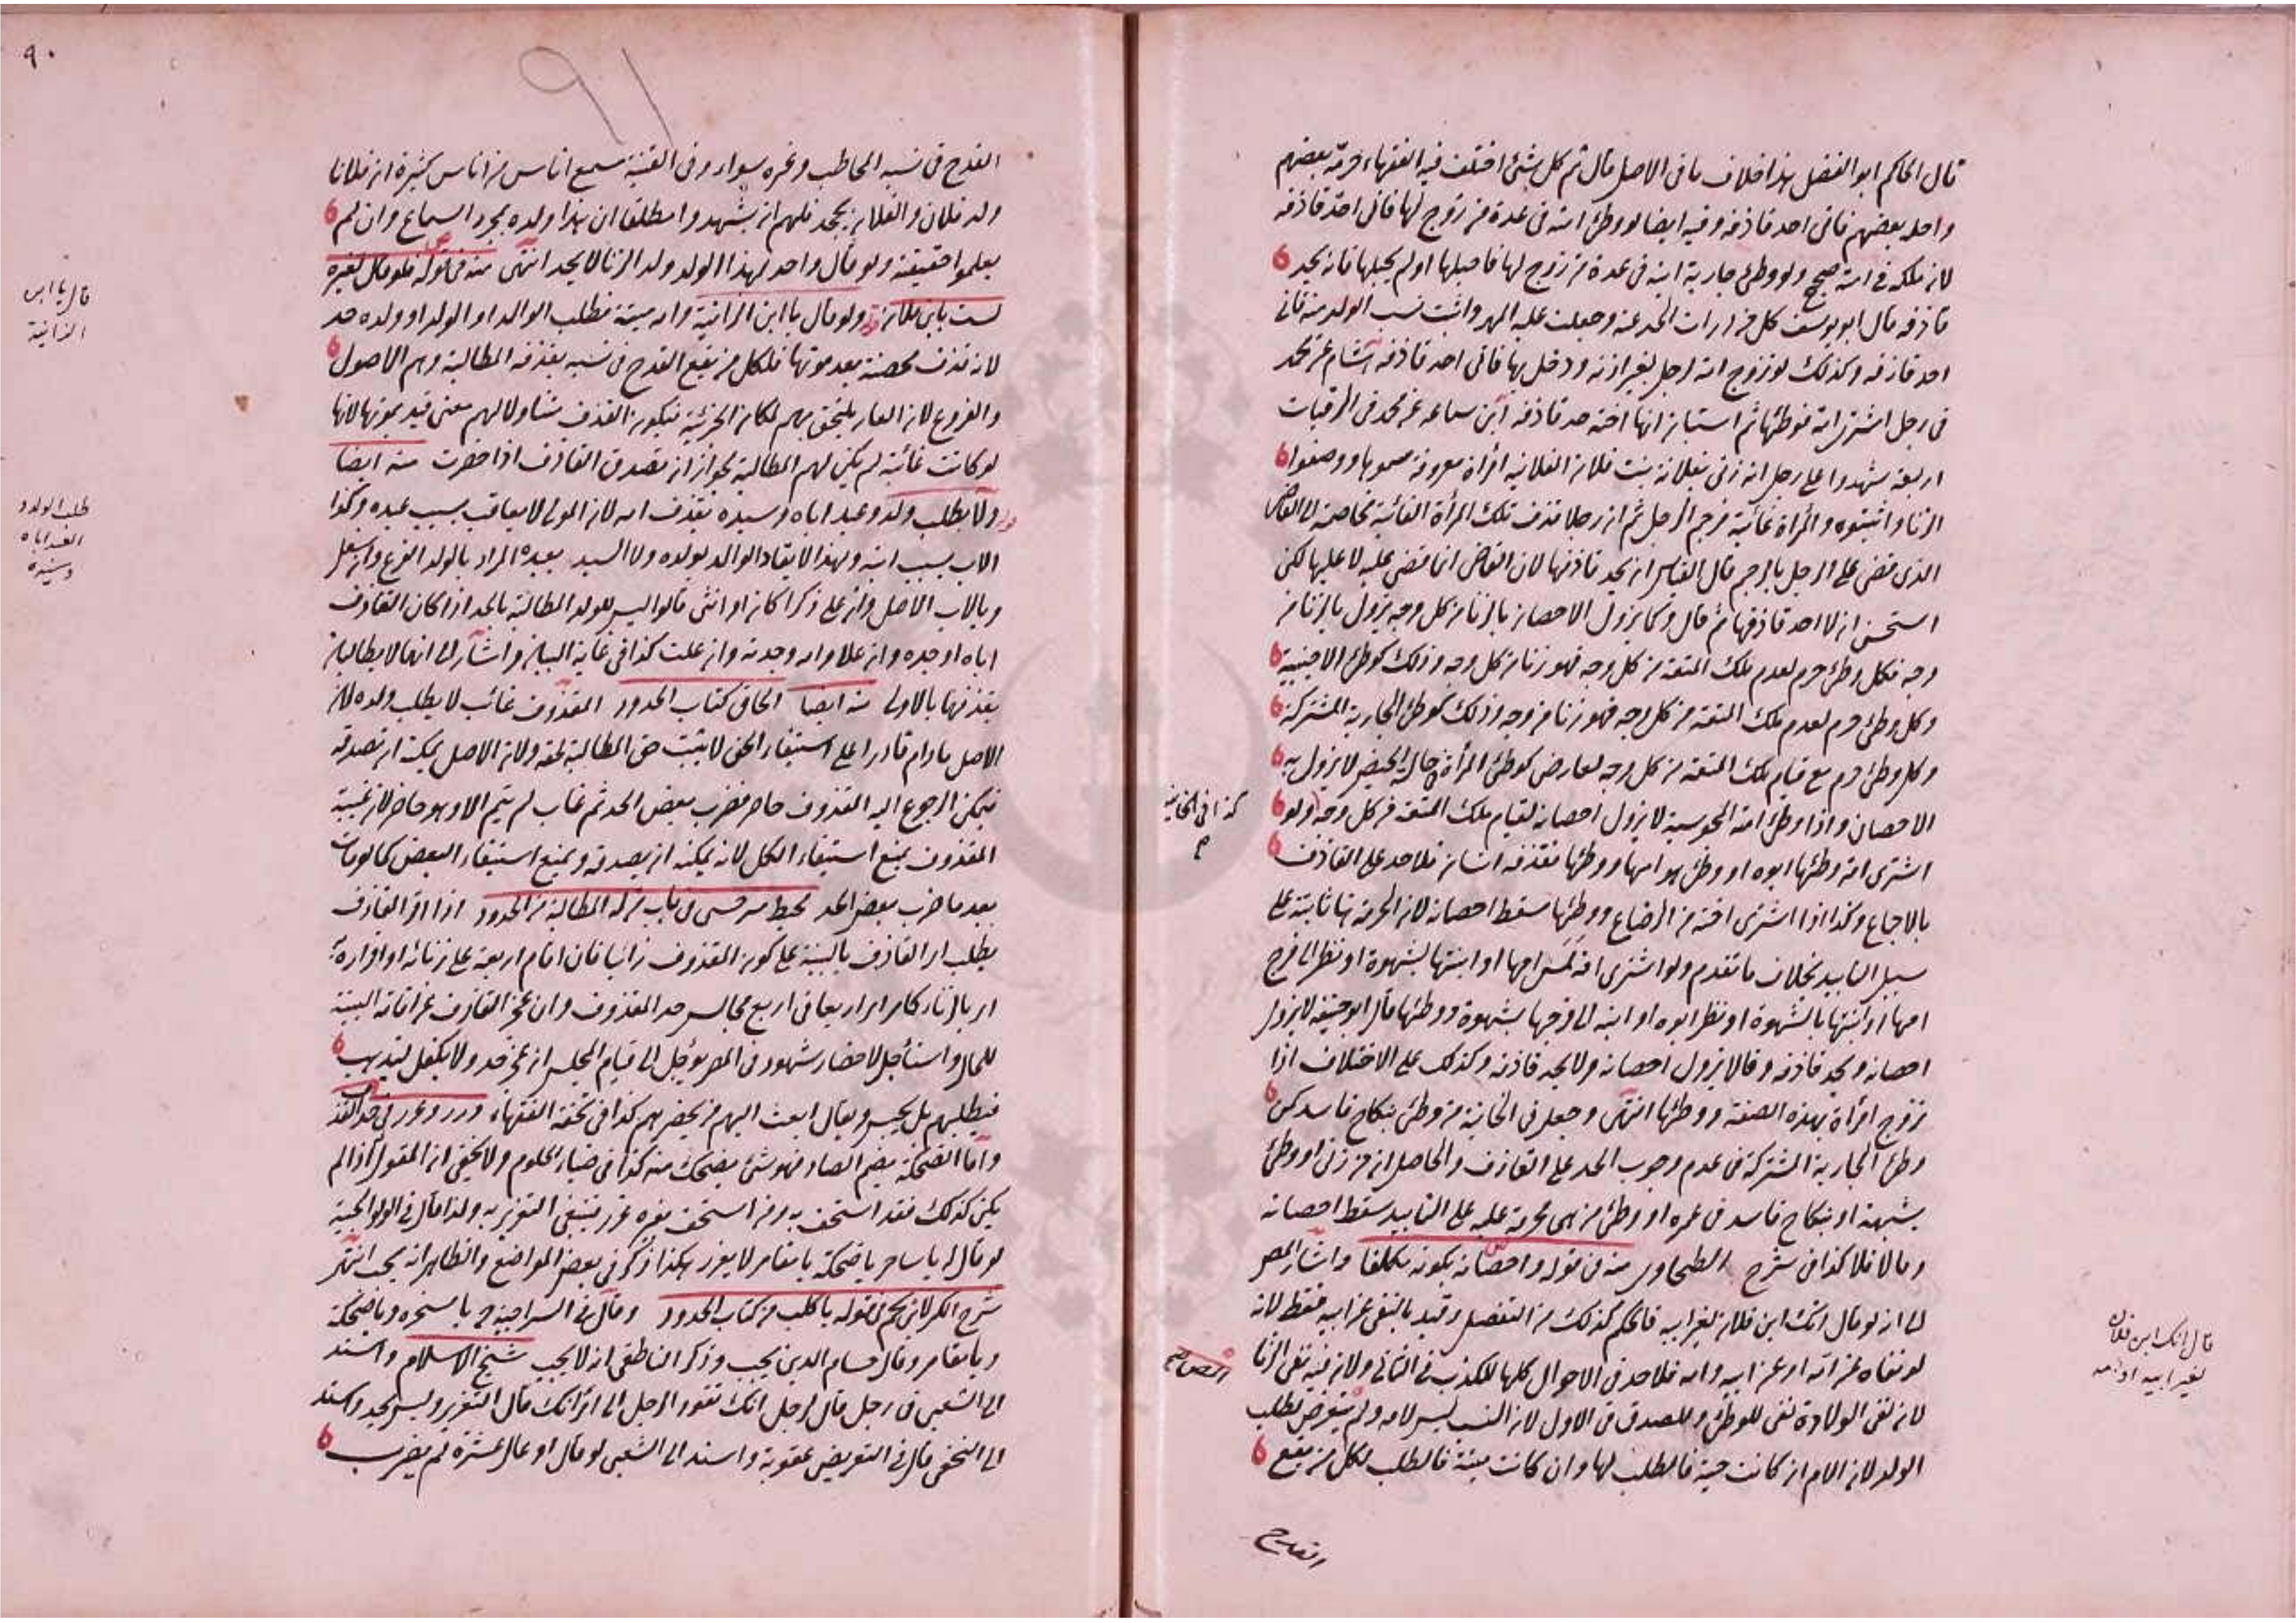 قال الحاكم ابو الفضل هذا خلاف ما فى الاصل قال ثم كل شئ اختلف فيه الفقهاء حرمه بعضهم
واحله بعضهم فانى احد قاذفه وفيه ايضا لو وطئ امته فى عدة من زوج لها فانى احد قاذفه
لان ملكه فى امته صحيح ولو وطئ جارية ابنه فى عدة من زوج لها فاحبلها او لم يحبلها فانه يحد
قاذفه قال ابو يوسف كل من درات الحد عنه وجعلت عليه المهر واثبت نسب الولد منه فانى
احد قاذفه وكذلك لو تزوج امة لرجل بغير اذنه ودخل بها فانى احد قاذفه هشام عن محمد
فى رجل اشترى امة فوطئها ثم استبان انها اخته حد قاذفه ابن سماعه عن محمد فى الرقيات
اربعة شهدوا على رجل انه زنى بفلانة بنت فلان الفلانيه امرأة معروفة سموها ووصفوا
الزنا واثبتوه والمرأة غائبة فرجم الرجل ثم ان رجلا قذف تلك المرأة الغائبة فخاصمته الى القاضى
الذى قضى على الرجل بالرجم قال القياس ان يحد قاذفها لان القاضى انما قضى عليه لا عليها لكن
استحسن ان لا احد قاذفها ثم قال وكما يزول الاحصان بالزنا من كل وجه يزول بالزنا من
وجه فكل وطئ حرم لعدم ملك المتعة من كل وجه فهو زنا من كل وجه وذلك كوطئ الاجنبية
وكل وطئ حرم لعدم ملك المتعة من كل وجه فهو زنا من وجه وذلك كوطئ الجارية المشتركة
وكل وطئ حرم مع قيام ملك المتعة من كل وجه لعارض كوطئ المرأة حالة الحيض لا يزول به
الاحصان واذا وطئ امته المجوسية لا يزول احصانه لقيام ملك المتعة من كل وجه ولو
كذا فى الخانية
اشترى امة وطئها ابوه او وطئ هو امها ووطئها فقذفه انسان فلا حد على القاذف
بالاجماع وكذا اذا اشترى اخته من الرضاع ووطئها سقط احصانه لان الحرمة هنا ثابتة على
سبيل التابيد بخلاف ما تقدم ولو اشترى امة لمس امها او ابنتها بشهوة او نظر الى فرج
امها او ابنتها بالشهوة او نظر ابوه او ابنه الى فرجها بشهوة ووطئها قال ابو حنيفة لا يزول
احصانه ويحد قاذفه وقالا يزول احصانه ولا يحد قاذفه وكذلك على الاختلاف اذا
تزوج امرأة بهذه الصفة ووطئها انتهى وجعل فى الخانية من وطئ بنكاح فاسد كمن
وطئ الجارية المشتركة فى عدم وجوب الحد على القاذف والحاصل ان من زنى او وطئ
بشبهة او بنكاح فاسد فى عمره او وطئ من هى محرمة عليه على التابيد سقط احصانه
ومالا فلا كذا فى شرح الطحاوى منه فى قوله واحصانه بكونه مكلفا واشار المصر
الى ان لو قال انك ابن فلان لغير ابيه فالحكم كذلك من التفصيل وقيد بالنفى عن ابيه فقط لانه
قال انك ابن فلان
لغير ابيه او امه
لو نفاه عن امه او عن ابيه وامه فلا حد فى الاحوال كلها للكذب فى الثانى ولان فيه نفى الزنا
لان نفى الولادة نفى للوطئ وللصدق فى الاول لان النسب ليس لامه ولم يتعرض لطلب
الولد لان الام ان كانت حية فالطلب لها وان كانت ميتة فالطلب لكل من يقع
القدح
٩٠
٩١
القدح فى نسبه المخاطب وغيره سواء وفى القنية سمع اناس من اناس كثيرة ان فلانا
ولد فلان والفلان يجحد فلهم ان يشهدوا مطلقا ان هذا ولده بمجرد السماع وان لم
يعلموا حقيقته ولو قال واحد لهذا الولد ولد الزنا لا يحد انتهى منه فى قوله فلو قال لغيره
لست بابن فلان ولو قال يا ابن الزانية وامه ميتة فطلب الوالد او الولد او ولده حد
قال يا ابن
الزانية
لانه قذف محصنة بعد موتها فلكل من يقع القدح فى نسبه بقذفه المطالبة وهم الاصول
والفروع لان العار يلتحق بهم لمكان الجزئية فيكون القذف متناولا لهم معنى قيد بموتها لانها
لو كانت غائبة لم يكن لهم المطالبة لجواز ان تصدق القاذف اذا حضرت منه ايضا
ولا يطلب ولد وعبد اباه وسيده بقذف امه لان المولى لا يعاقب بسبب عبده وكذا
طلب الولد و
العبد اباه
وسيده
الاب بسبب ابنه ولهذا لا يقاد الوالد بولده ولا السيد بعبده المراد بالولد الفرع وان سفل
وبالاب الاصل وان على ذكرا كان او انثى قالوا ليس للولد المطالبة بالحد اذا كان القاذف
اباه او جده وان علا وامه وجدته وان علت كذا فى غاية البيان واشار الى انهما لا يطالبان
بقذفهما بالاولى منه ايضا الحاق كتاب الحدود المقذوف غائب لا يطلب ولده لان
الاصل ما دام قادرا على استيفاء الحق لا يثبت حق المطالبة لخلفه ولان الاصل يمكنه ان تصدقه
فيمكن الرجوع اليه المقذوف حاضر فضرب بعض الحد ثم غاب لم يتم الا وهو حاضر لان غيبة
المقذوف يمنع استيفاء الكل لانه يمكنه ان يصدقه ويمنع استيفاء البعض كما لو مات
بعد ما ضرب بعض الحد محيط سرخسى فى باب من له المطالبة من الحدود اذا اقر القاذف
يطلب اى القاذف بالبينة على كون المقذوف زانيا فان اقام اربعة على زنائه او اقراره
اى بالزنا كما مر اربعا فى اربع مجالس حد المقذوف وان عجز القاذف عن اقامة البينة
للحال واستأجل لاحضار شهوده فى المصر يؤجل الى قيام المجلس ان عجز حد ولا يكفل ليذهب
فيطلبهم بل يحبس ويقال ابعث اليهم من يحضرهم كذا فى تحفة الفقهاء درر وغرر فى حد القذف
واما الضحكة بضم الضاد فهو شئ يضحك منه كذا فى ضياء الحلوم ولا يخفى ان المقول اذا لم
يكن كذلك فقد استخف به ومن استخف بغيره عزر فينبغى التعزير به ولذا قال فى الولوالجية
لو قال له يا ساحر يا ضحكة يا مقامر لا يعزر هكذا ذكر فى بعض المواضع والظاهر انه يجب انتهى
شرح الكنز لابن نجم فى قوله يا كلب من كتاب الحدود وقال فى السراجية وى يا مسخره ويا ضحكة
ويا مقامر وقال حسام الدين يجب وذكر الناطفى انه لا يجب شيخ الاسلام واسند
الى الشعبى فى رجل قال لرجل انك تقود الرجل الى امرأتك قال التعزير وليس بحد واسند
الى النخعى قال فى التعريض عقوبة واسند الى الشعبى لو قال او عال عشرة لم يضرب